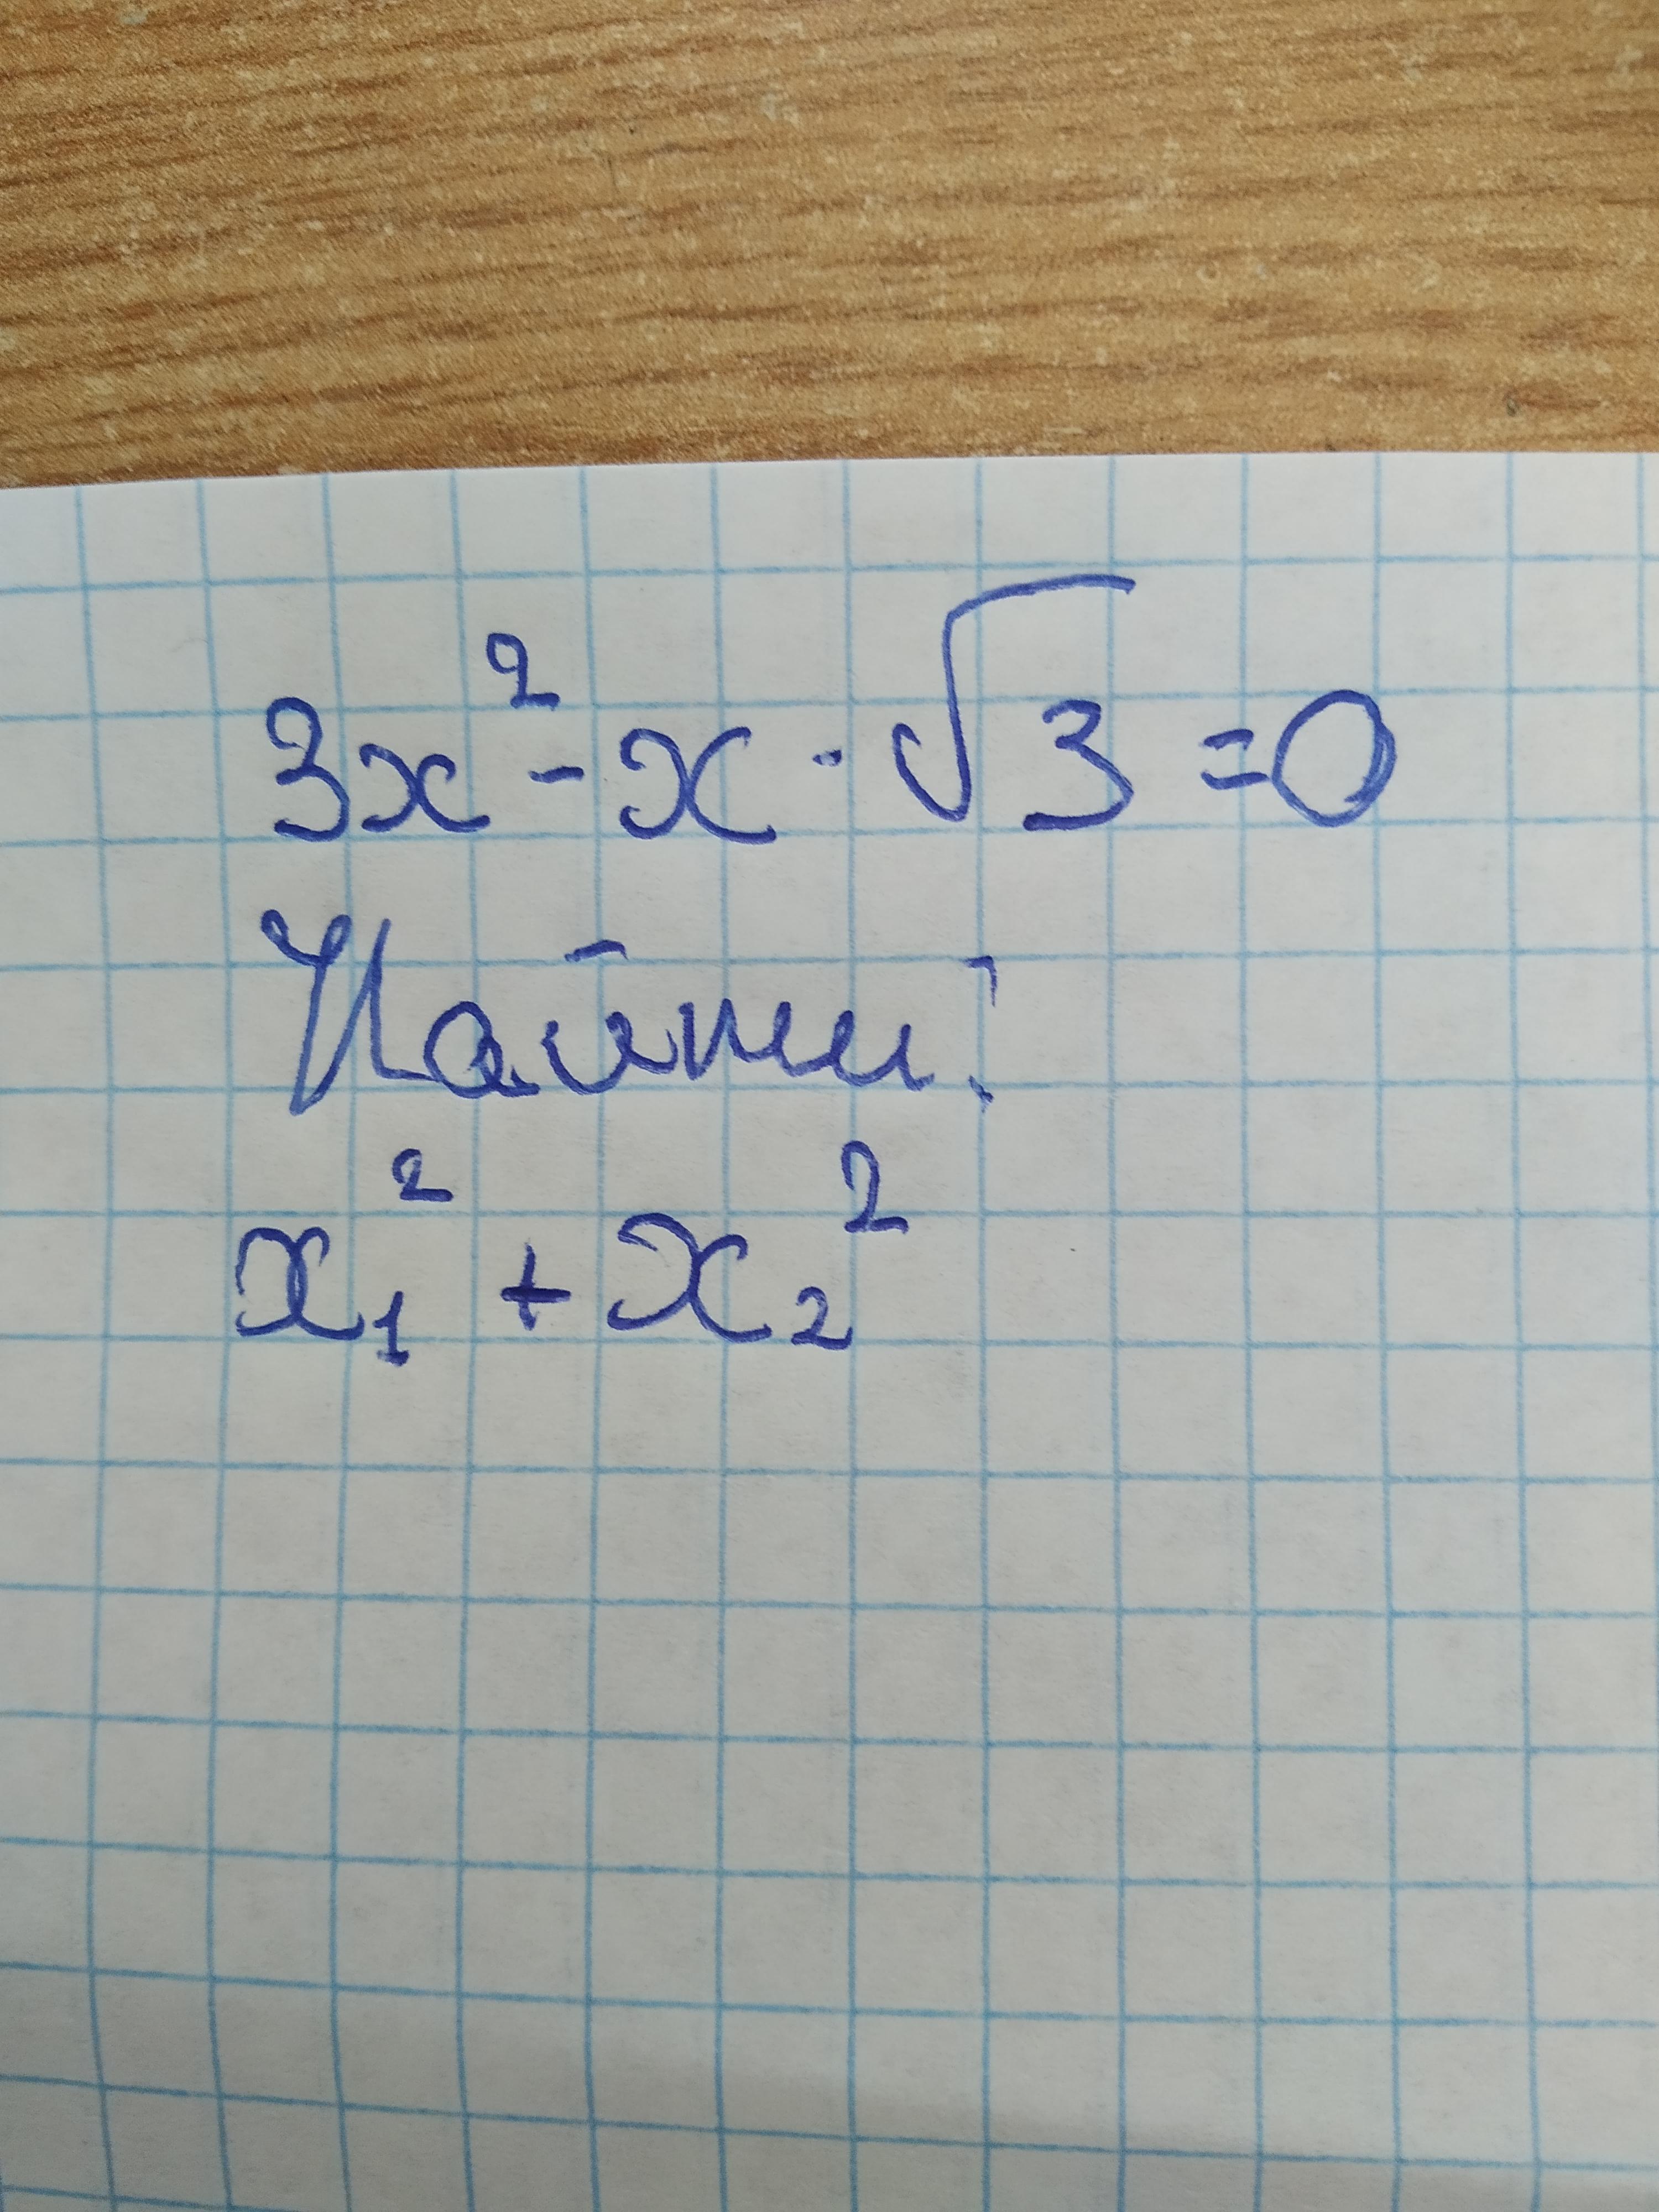 3x² - x · √3 = 0
Найти:
x₁² + x₂²